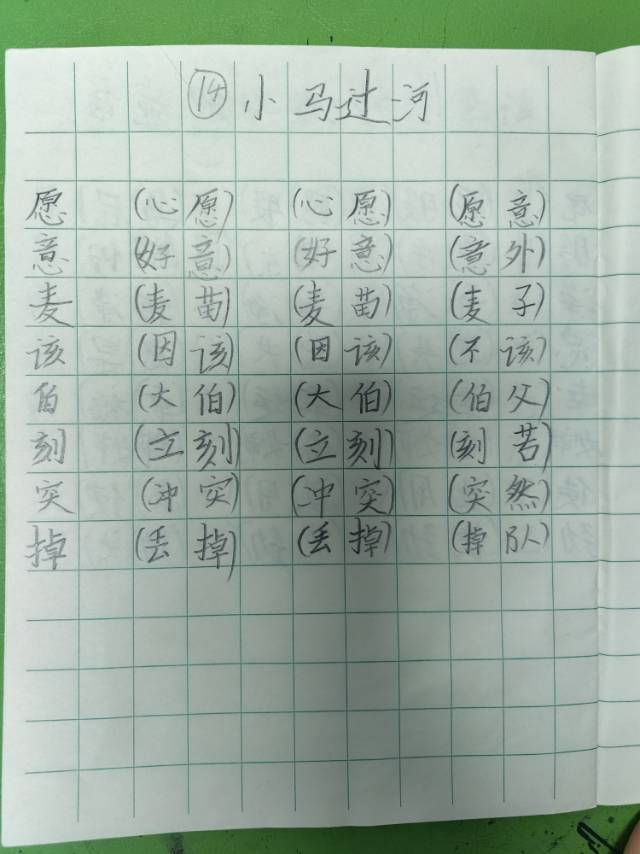 ⑭小马过河
愿 (心愿) (心愿) (愿意)
意 (好意) (好意) (意外)
麦 (麦苗) (麦苗) (麦子)
该 (因该) (因该) (不该)
伯 (大伯) (大伯) (伯父)
刻 (立刻) (立刻) (刻苦)
突 (冲突) (冲突) (突然)
掉 (丢掉) (丢掉) (掉队)